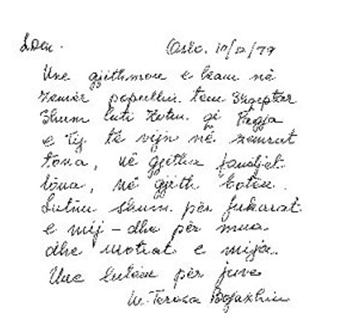 LDM. Oslo. 10/12/79
Une gjithmon e kam në
zemër popullin tem Shqiptar
Shum luti Zotin qi Paqja
e Tij të vijn në zemrat
tona, në gjitha familjet
tona, në gjith botën.
Lutnu shum për fukarat
e mij – dhe për mua
dhe motrat e mija.
Une lutem për juve
M. Teresa Bojaxhiu